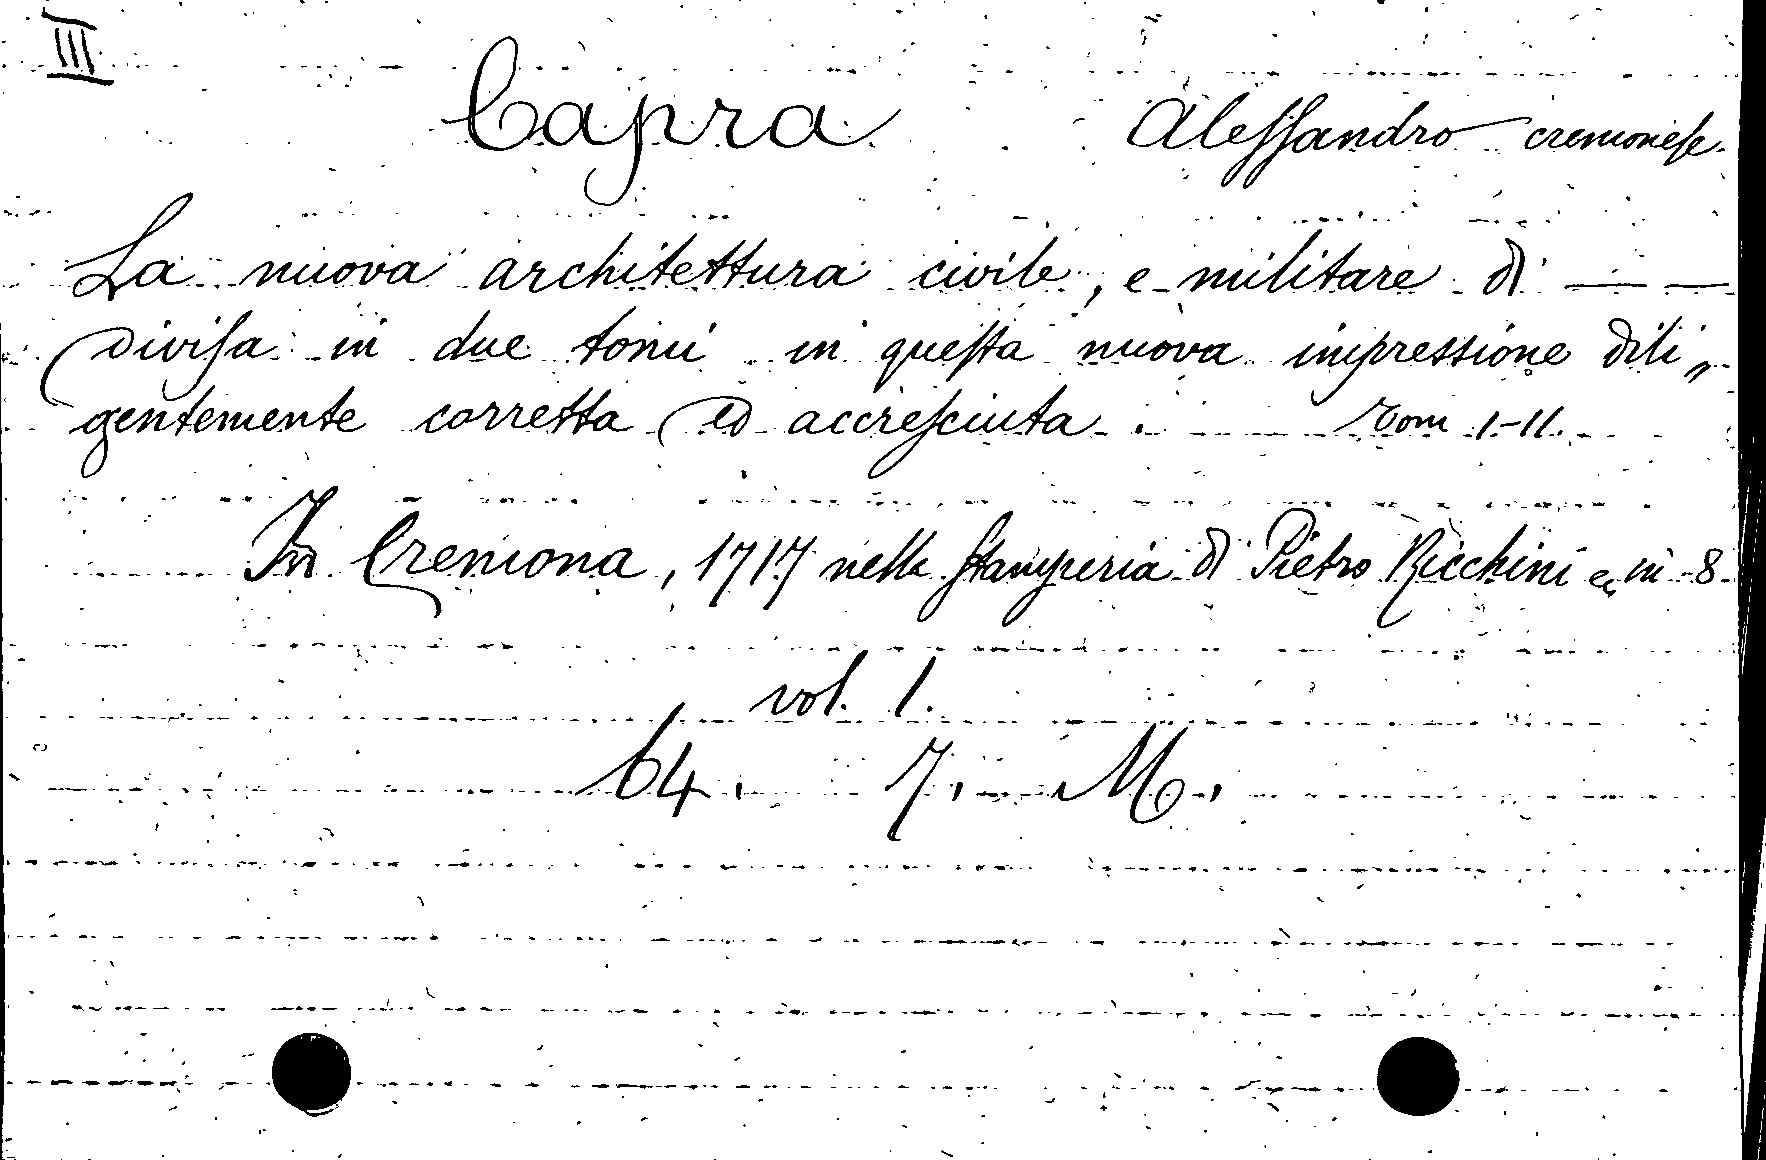 III
Capra Aleſſandro cremoneſe.
La nuova architettura civile, e militare di — —
Diviſa in due tomi in queſta nuova impressione dili„
gentemente corretta ed accreſciuta. Tom I-II.
In Cremona, 1717 nella ſtamperia di Pietro Ricchini in 8
vol. 1.
64. 7. M.